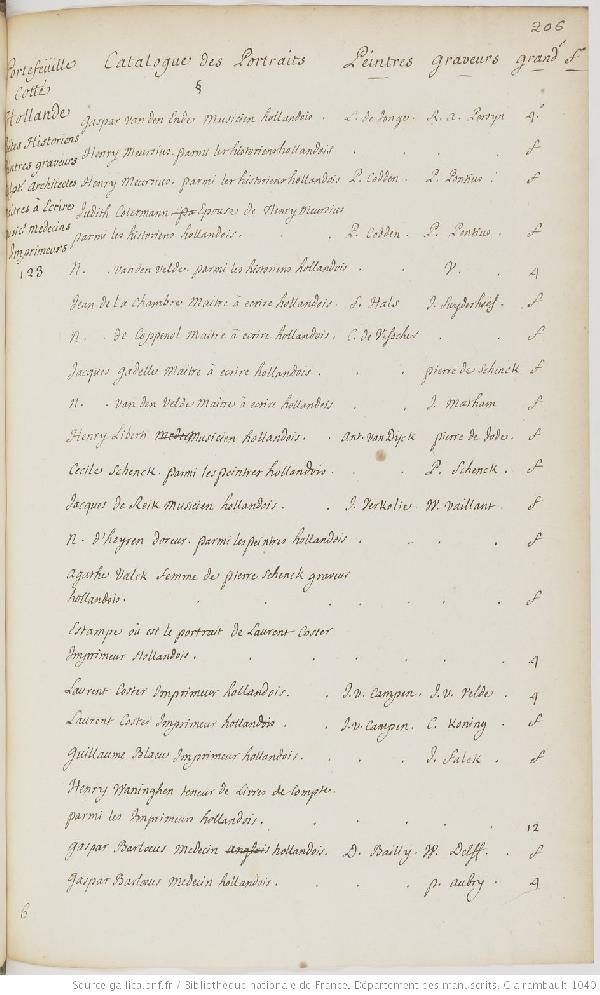 206
Portefeuille Catalogue des Portraits Peintres graveurs grandr f
Cotté
§
Hollande
Gaspar vanden Ende Musicien hollandois . L. de Jonge . R. a. Persyn 4°
Henry Meursius . parmi les historiens hollandois . . . f
Historiens
Peintres graveurs
Architectes
Henry Meursius . parmi les historiens hollandois P. Codden . P. Pontius . f
Maitres à Ecrire
Judith Cotermann Epouse de Henry Meursius
medecins
parmi les historiens hollandois . . P. Codden . P. Pontius . f
Imprimeurs
123
N. . vanden velde parmi les historiens hollandois . . V. . 4
Jean de la Chambre Maitre à ecrire hollandois . f. Hals J. Suyderhoef . f
N. . de Coppenol Maitre à ecrire hollandois . C. de Visscher . f
Jacques gadelle Maitre à ecrire hollandois . . . pierre de Schenck f
N. . van den Velde Maitre à ecrire hollandois . . J. Matham f
Henry Liberti Musicien hollandois . Ant. van Dijck pierre de Jode . f
Cecile Schenck . parmi les peintres hollandois . . P. Schenck . f
Jacques de Reik Musicien hollandois . . J. Verkolie . W. vaillant . f
N. d'heyren doreur . parmi les peintres hollandois . . . f
Agathe Valck femme de pierre Schenck graveur
hollandois . . . . . . f
Estampe où est le portrait de Laurent Coster
Imprimeur Hollandois . . . . . . 4
Laurent Coster Imprimeur hollandois . . J. v. Campen . J. v. Velde . 4
Laurent Coster Imprimeur hollandois . . J. v. Campen . C. Koning . f
Guillaume Blaeu Imprimeur hollandois . . . J. Falck . f
Henry Waninghen teneur de Livres de Compte .
parmi les Imprimeurs hollandois . . . . . 12
Gaspar Barlœus Medecin anglois hollandois . D. Bailly . W. Delff . f
Gaspar Barlœus Medecin hollandois . . . . p. aubry . 4
6
Source gallica.bnf.fr / Bibliothèque nationale de France. Département des manuscrits. Clairambault 1040